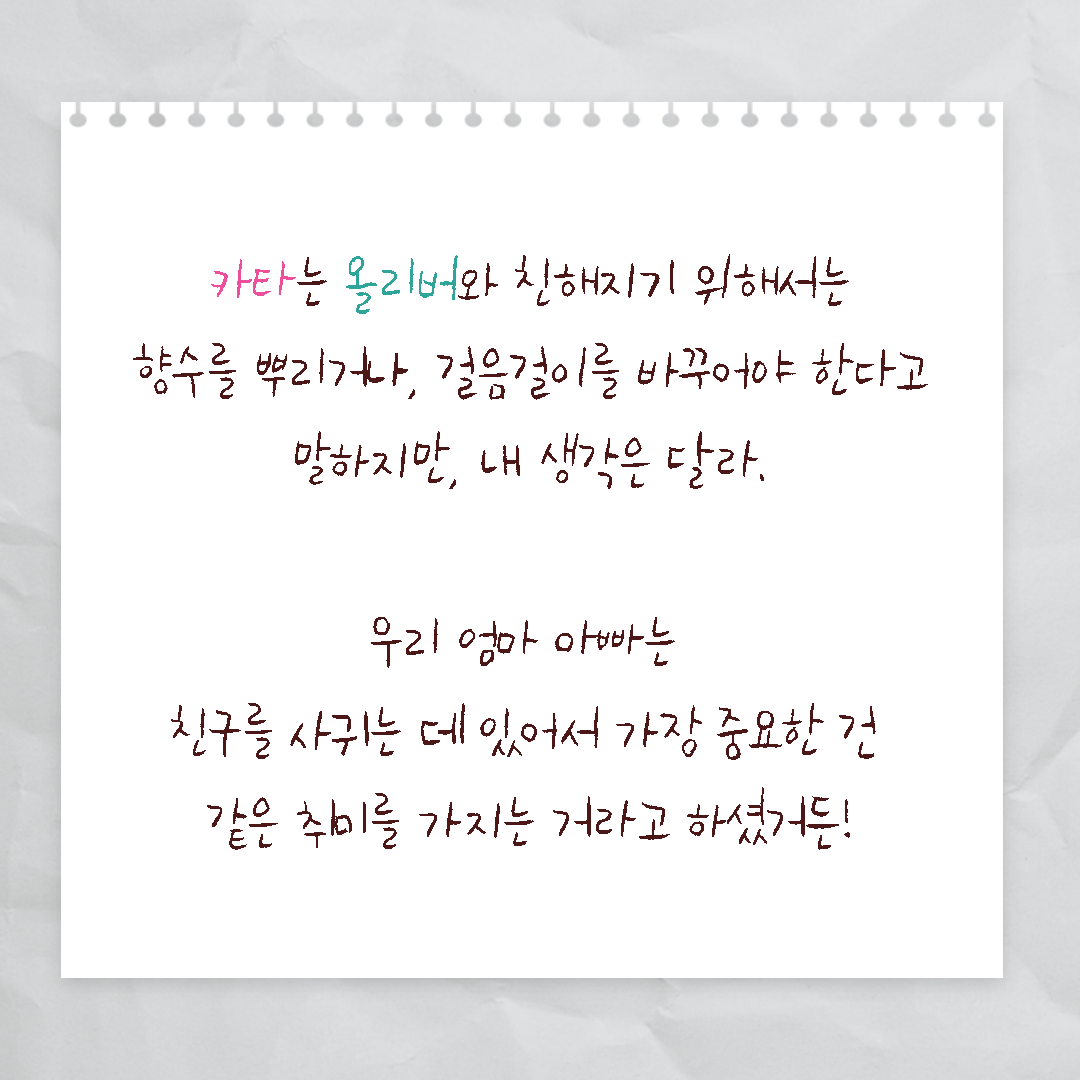 카타는 올리버와 친해지기 위해서는
향수를 뿌리거나, 걸음걸이를 바꾸어야 한다고
말하지만, 내 생각은 달라.
우리 엄마 아빠는
친구를 사귀는 데 있어서 가장 중요한 건
같은 취미를 가지는 거라고 하셨거든!